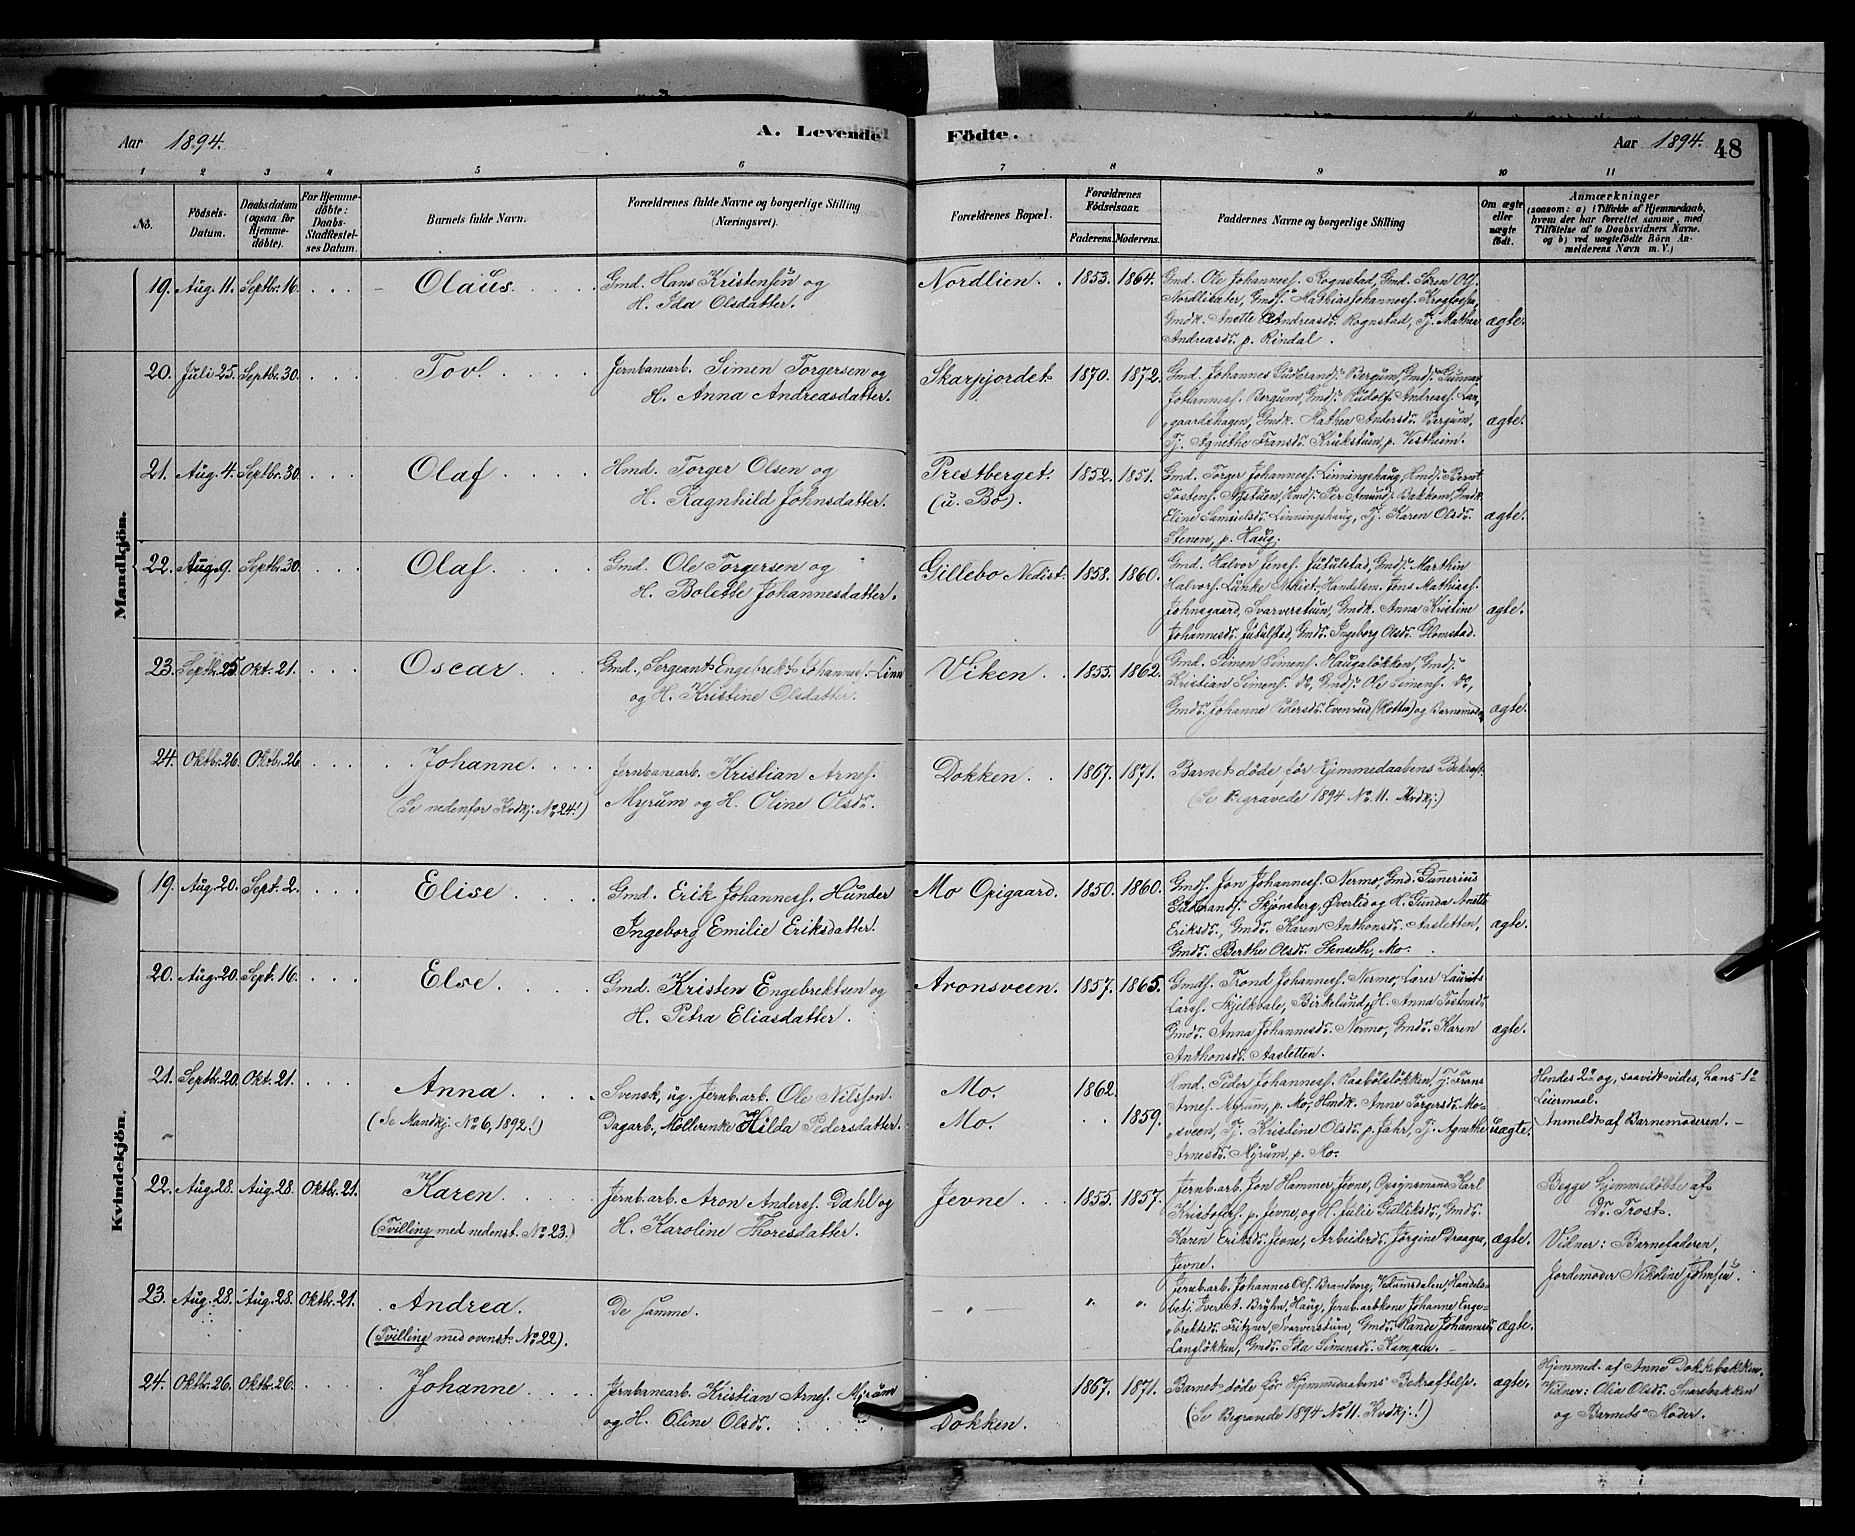 Aar 1894.
A. Levende Födte.
Aar 1894. 48
1 2 3 4 5 6 7 8 9 10 11
No.
Födsels-Datum.
Daabsdatum (ogsaa for Hjemme-döbte).
For Hjemme-döbte: Daabs-Stadfæstel-ses Datum.
Barnets fulde Navn.
Forældrenes fulde Navne og borgerlige Stilling (Næringsvei).
Forældrenes Bopæl.
Forældrenes Födselsaar.
Faderens. Moderens.
Faddernes Navne og borgerlige Stilling
Om ægte eller uægte födt.
Anmærkninger
(saasom: a) i Tilfælde af Hjemmedaab, hvem der har forrettet samme, med Tilföielse af to Daabsvidners Navne. og b) ved uægtefödte Börn An-melderens Navn m. V.)
Mandkjön.
19. Aug. 11. Septbr. 16. Olaus
Gmd. Hans Kristensen og
H. Ida Olsdatter.
Nordlien. 1853. 1864.
Gmd. Ole Johanness. Rognstad, Gmd. Sören Ols.
Andreasds. p. Rindal.
ægte.
20. Juli 25. Septbr. 30.
Jernbanearb. Simen Torgersen og
H. Anna Andreasdatter.
1870. 1872.
Gmd. Johannes Gudbrands. Bergum, Gmds. Gunnar
Johanness. Bergum, Gmds. Rudolf Andreass.
Gmdk. Mathea Andersds. Bergum,
Tj. Agnethe Fransds. Krukstuen, p. Vestheim.
ægte.
21. Aug. 4. Septbr. 30. Olaf
Hmd. Torger Olsen og
H. Ragnhild Johnsdatter.
Prestberget
(u. Bö).
1852. 1851.
Gmd. Torger Johanness. Linningshaug,
Eline Samuelsds. Linningshaug, Tj. Karen Olsds.
Stenen, p. Haug.
ægte.
22. Aug. 9. Septbr. 30. Olaf
Gmd. Ole Torgersen og
H. Bolette Johannesdatter.
Gillebo Nedist. 1858. 1860.
Gmd. Halvor Jenss. Jutulstad, Gmds. Marthin
Svarverstuen, Gmdk. Anna Kristine
Johannesds. Jutulstad, Gmds. Ingeborg Olsds. Glomstad.
ægte.
23. Septbr. 25. Okt. 21. Oscar
Gmd., Sergeant Engebrekt Johannes. Linn
og H. Kristine Olsdatter.
Viken. 1853. 1862.
Gmd. Simen Simens. Haugalökken, Gmds.
Kristian Simens. do, Gmds. Ole Simens. do,
Gmds. Johanne Pedersds. og Barnemoderen
ægte.
24. Oktbr. 26. Oktbr. 26 Johanne.
(Se nedenfor Kvdkj: No 24!)
Jernbanearb. Kristian Arnes.
Myrum og H. Oline Olsds.
Dokken. 1867. 1871.
Barnet döde för Hjemmedaabens Bekræft.
(Se Begravede 1894 No 11. Kvdkj:)
Kvindekjön.
19. Aug. 20. Sept. 2. Elise
Gmd. Erik Johanness. Hunder
Ingeborg Emilie Eriksdatter.
Mo Opigaard. 1850. 1860.
Gmds. Jon Johanness. Nermo, Gmd. Gunerius
Gudbrands. Skjönsberg, Överlid og H. Gunda Anette
Eriksds., Gmds. Karen Anthonsds. Aasletten,
Gmds. Berthe Olsds. Henseth, Mo.
ægte.
20. Aug. 20. Sept. 16. Else.
Gmd. Kristen Engebrektsen og
H. Petra Eliasdatter.
Aronsveen. 1857. 1865.
Gmds. Trond Johanness. Nermo, Lærer Laurits
Larss. Skjelkvale, Birkelund,
Gmds. Anna Johannesds. Nermo, Gmds. Karen
Anthonsds. Aasletten.
ægte.
21. Septbr. 20. Okt. 21. Anna
(Se Mandkj: No 6, 1892!)
Svensk, ug. Jernb.arb. Ole Nilsson.
Dagarb., Möllerenke Hilda Pedersdatter.
Mo. 1862.
Mo. 1859.
Hmd. Peder Johanness. Tj. Frans
Arnes. Myrum, p. Mo, Hmdk. Anne Torgersds. Mo-
sveen, Tj. Kristine Olsds. p. Tj. Agnethe
Arnesds. Myrum, p. Mo.
uægte.
Hendes 2det og, saavidt vides, hans 1ste
Leiermaal.
Anmeldt af Barnemoderen. –
22. Aug. 28. Aug. 28. Oktbr. 21. Karen
(Tvilling med nedenst. No 23.)
Jernb.arb. Aron Anderss. Dahl og
H. Karoline Thoresdatter.
Jevne 1855. 1857.
Jernb.arb. Jon Hammer, Jevne, Opsynsmand Karl
Kristofers. p. Jevne, og H. Julie Gulliksds., Gmds.
Karen Eriksds. Jevne, Arbeiderds. Jörgine Draagen,
Jevne.
ægte.
Begge hjemmedöbte af
Dr. Trost.
Vidner: Barnefaderen,
Jordemoder Nikoline Johnsen.
23. Aug. 28. Aug. 28. Oktbr. 21. Andrea.
(Tvilling med ovenst. No 22).
De samme.
– „ – „ „
Jernb.arb. Johannes Ols. Brandborg, Vedumsdalen, Handels-
betj. Haug, Jernb.arbkone Johanne Enge-
brektsds. Fritzner, Svarverstuen, Gmds. Rande Johannesds.
Langlökken, Gmds. Ida Simensds. Kampen.
ægte.
24. Oktbr. 26. Oktbr. 26. Johanne
Jernbanearb. Kristian Arnes. Myrum
og H. Oline Olsds.
Dokken. 1867. 1871.
Barnet döde för Hjemmedaabens Bekræftelse.
(Se Begravede 1894 No 11. Kvdkj:!)
ægte.
Hjemmed. af Anne Dokkebakken.
Vidner: Olia Olsds. Snarebakken
og Barnets Moder.